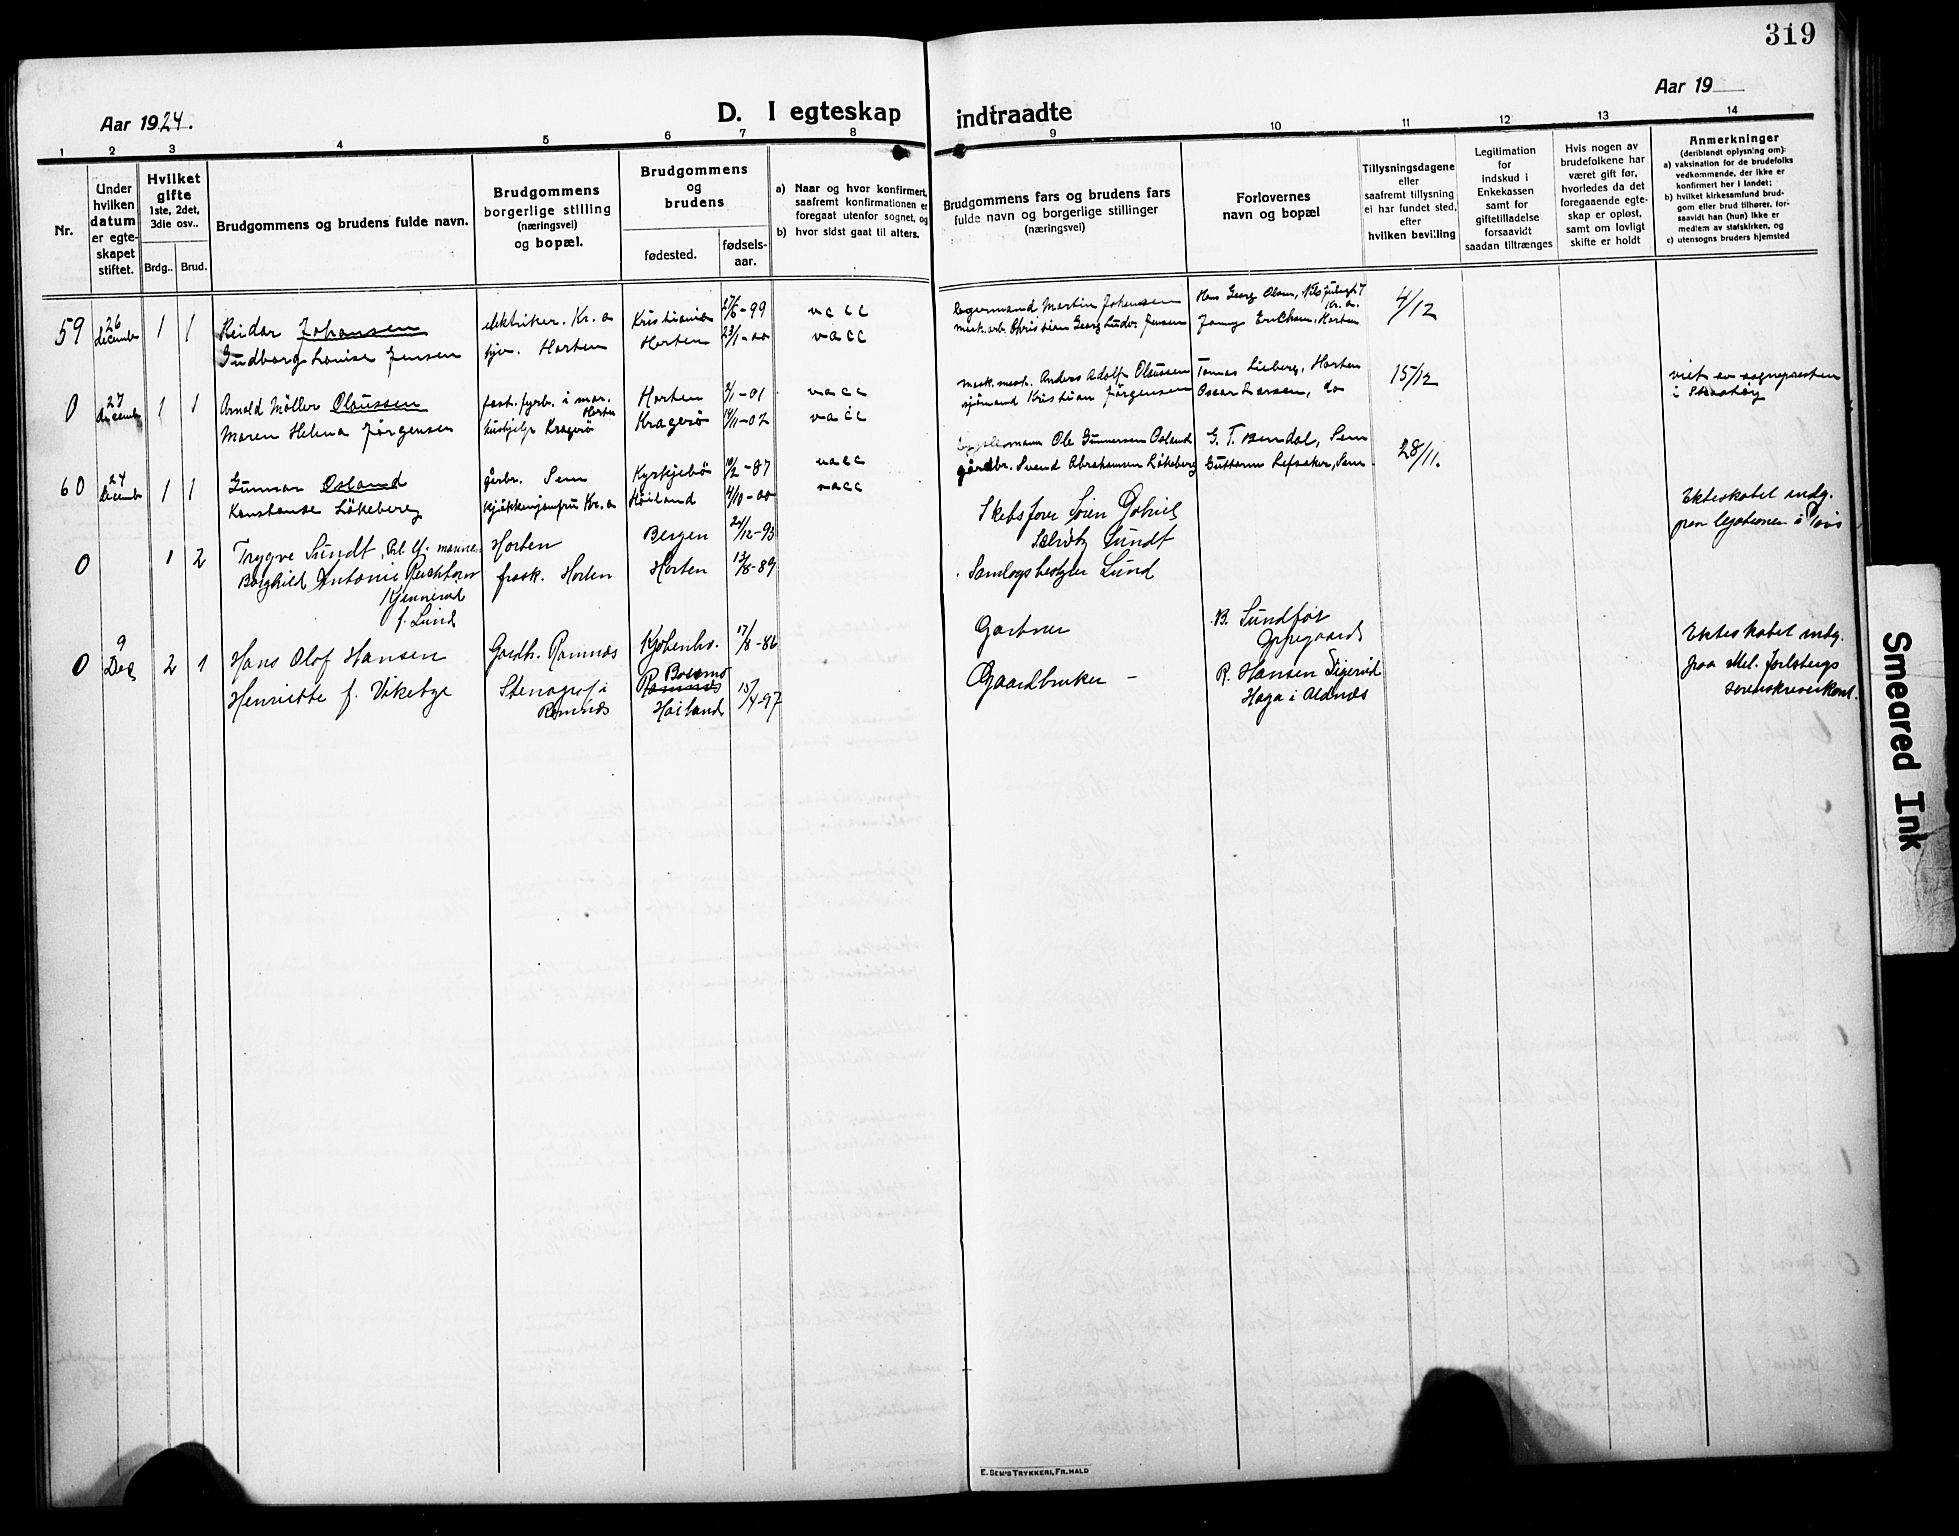 319
Aar 1924.
D. I egteskap indtraadte
Aar 19
1 2 3 4 5 6 7 8 9 10 11 12 13 14
Nr.
Under
hvilken
datum
er egte-
skapet
stiftet.
Hvilket
gifte
1ste, 2det,
3die osv..
Brdg.. Brud.
Brudgommens og brudens fulde navn.
Brudgommens
borgerlige stilling
(næringsvei)
og bopæl.
Brudgommens
og
brudens
fødested.
fødsels-
aar.
a) Naar og hvor konfirmert,
saafremt konfirmationen er
foregaat utenfor sognet, og
b) hvor sidst gaat til alters.
Brudgommens fars og brudens fars
fulde navn og borgerlige stillinger
(næringsvei)
Forlovernes
navn og bopæl
Tillysningsdagene
eller
saafremt tillysning
ei har fundet sted,
efter
hvilken bevilling
Legitimation
for
indskud i
Enkekassen
samt for
giftetilladelse
forsaavidt
saadan tiltrænges
Hvis nogen av
brudefolkene har
været gift før,
hvorledes da det
foregaaende egte-
skap er opløst,
samt om lovligt
skifte er holdt
Anmerkninger
(deriblandt oplysning om):
a) vaksination for de brudefolks
vedkommende, der ikke er
konfirmert her i landet;
b) hvilket kirkesamfund brud-
gom eller brud tilhører, for-
saavidt han (hun) ikke er
medlem av statskirken, og
c) utensogns bruders hjemsted
59 26 december 1 1 Reidar Johansen elektriker. Kr.a Kristiania 27/6-99 vacc lagermand Martin Johansen Hans Georg Olsen, Kr.a. 4/12
Gudborg Louise Jensen syv. Horten Horten 23/1-00 vacc mek.arb. Christian Georg Ludv. Jensen Jenny Erichsen, Horten
0 27 december 1 1 Arnold Möller Olaussen fast. fyrb. i mar. Horten Horten 2/1-01 vacc mask.mest. Anders Adolf Olaussen Tomas Lieberg, Horten 15/12 viet av sognepresten
Maren Helena Jørgensen hushjelp Kragerö Kragerö 14/11-02 vacc sjömand Kristian Jørgensen Oscar Larsen, do i Skaatøy
60 24 december 1 1 Gunnar Osland gårbr. Sem Kyrkjebö 10/2-87 vacc Ole Gunnersen Osland G. T. Sem 28/11.
Konstanse Lökeberg kjökkenjomfru Kr.a Höiland 4/10-00 vacc gårdbr. Svend Abrahamsen Lökeberg Guttorm Lefsaker, Sem.
0 1 2 Trygve Sundt, Prl. lf. marinen Horten Bergen 24/12-93 Skibsfører Sören Gabriel Sundt Ekteskabet indg.
paa legationen i Paris
Borghild Antonie frask. Horten Horten 13/8-89 Lund
Kjennerud
f. Lund
0 9 Dec 2 1 Hans Olof Hansen Gaardb. Ramnæs Kjøbenhv. 17/8-86 Gartner B. Sundför
Oppegaard Ekteskabet indg.
paa Mel. Jarlsbergs
sorenskriverkont.
Henriette f. Vikebye Stenograf i
Ramnæs Ramnæs
Höiland 15/4-97 Gaardbruker - R. Hansen
Haga i Udnæs
E. SEM'S TRYKKERI, FR.HALD
Smeared Ink